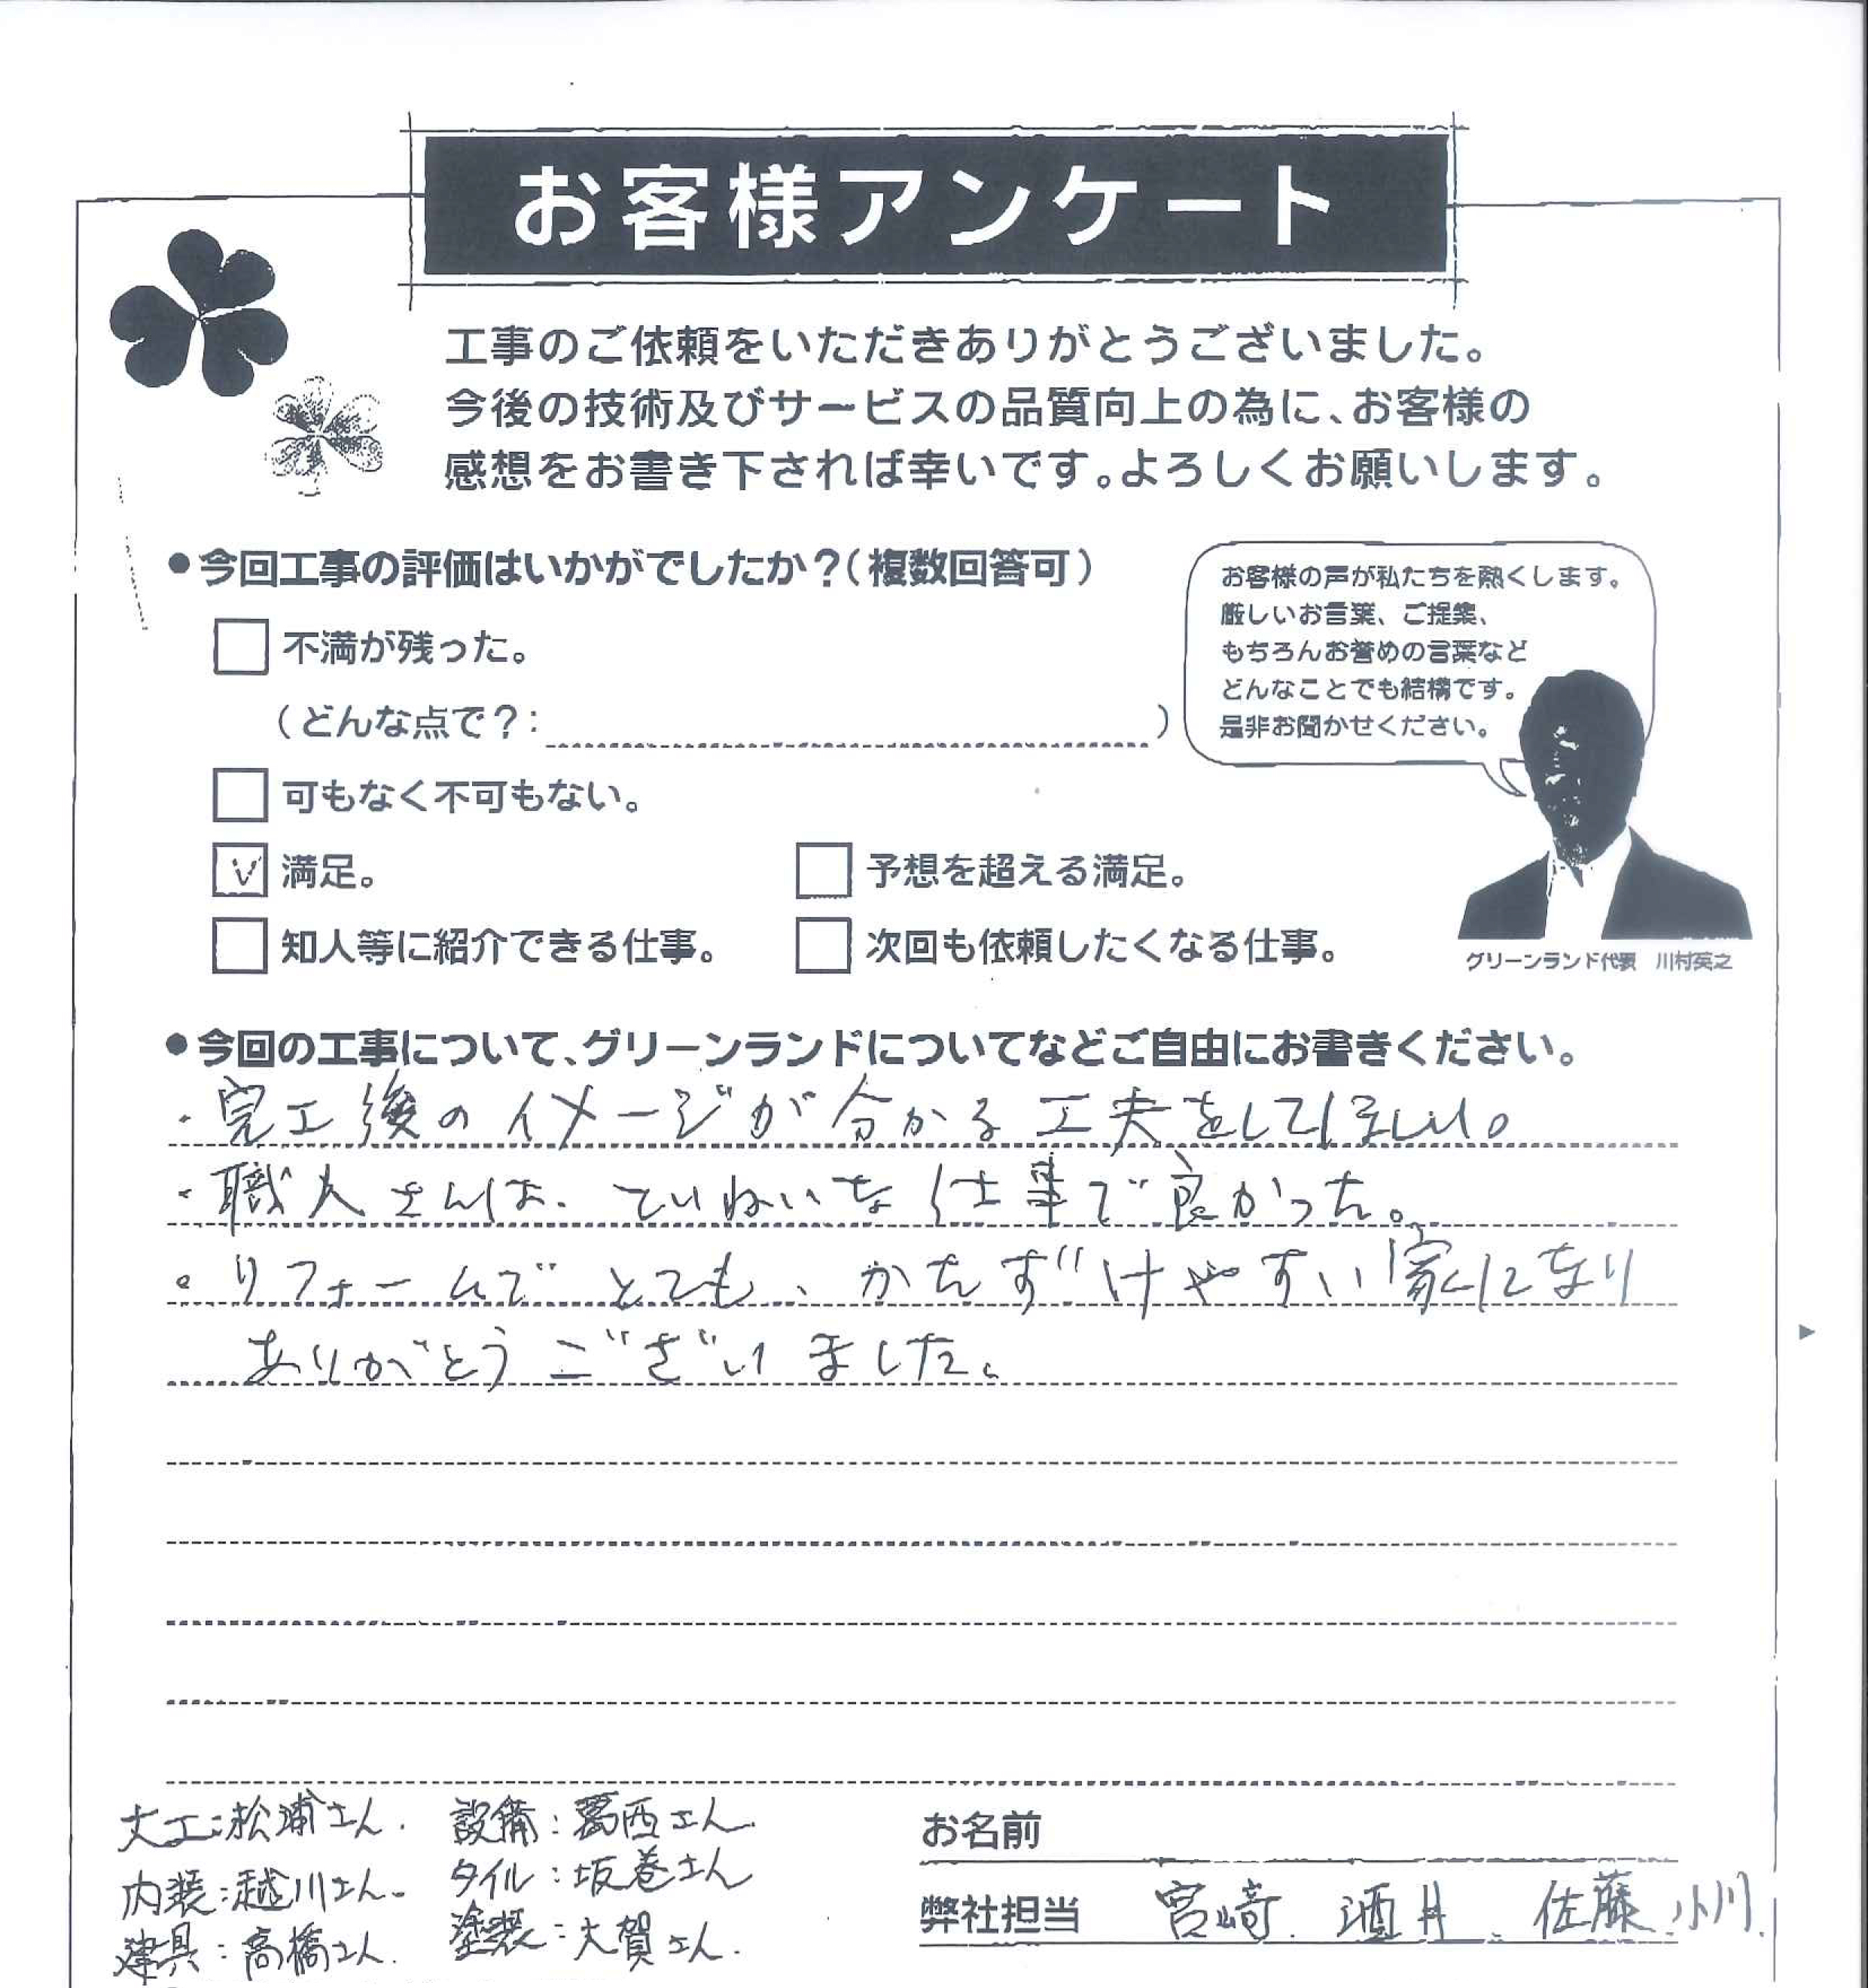 お客様アンケート
工事のご依頼をいただきありがとうございました。
今後の技術及びサービスの品質向上の為に、お客様の
感想をお書き下されば幸いです。よろしくお願いします。
●今回工事の評価はいかがでしたか？（複数回答可）
不満が残った。
（どんな点で？：　）
可もなく不可もない。
満足。
予想を超える満足。
知人等に紹介できる仕事。
次回も依頼したくなる仕事。
お客様の声が私たちを熱くします。
厳しいお言葉、ご提案、
もちろんお誉めの言葉など
どんなことでも結構です。
是非お聞かせください。
グリーンランド代表　川村英之
●今回の工事について、グリーンランドについてなどご自由にお書きください。
・完工後のイメージが分かる工夫をしてほしい。
・職人さんは、ていねいな仕事で良かった。
・リフォームでとても、かたずけやすい家になり
ありがとうございました。
大工：松浦さん. 設備：葛西さん.
内装：越川さん. タイル：坂巻さん
建具：高橋さん. 塗装：大賀さん.
お名前
弊社担当　宮崎. 酒井. 佐藤. 小川.